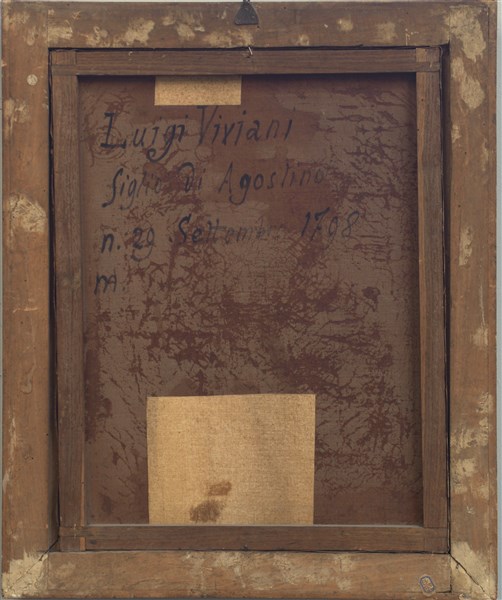 Luigi Viviani
figlio di Agostino
n. 29 Settembre 1798
m